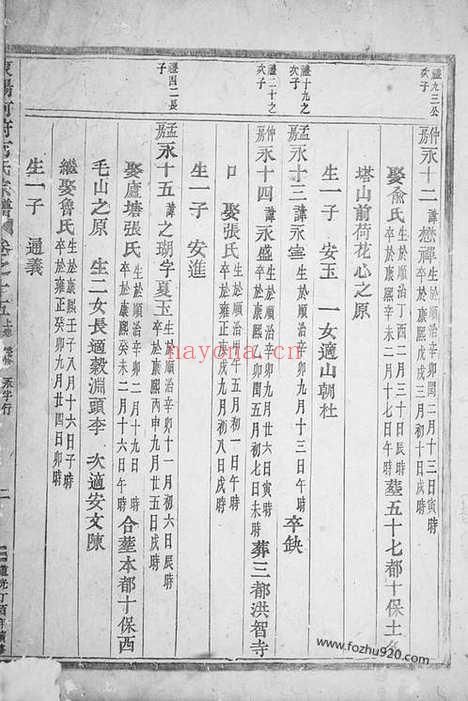 禮九三公
次子
仲房 永十二 諱懋禪 生於順治辛卯閏二月十三日寅時
卒於康熙
娶俞氏 生於順治丁酉二月三十日辰時
卒於康熙辛未二月十七日午時 葬五十七都十保土
塔山前荷花心之原
生一子 安玉 一女適山朝杜
禮十九之
次子
孟房 永十三 諱永寧 生於順治辛卯十一月初三日午時 卒缺
禮二十之
次子
仲房 永十四 諱永盛 生於順治辛卯九月廿六日寅時
卒於康熙 五月初七日未時 葬三都洪智寺
口 娶張氏 生於順治 午五月初一日午時
卒於雍正 戌九月初八日戌時
生一子 安進
禮四二長
子
孟房 永十五 諱之瑚字夏玉 生於順治辛卯十一月初六日辰時
卒於康熙丙申九月廿五日戌時
娶盧塘張氏 生於順治辛卯二月十九日 時
卒於康熙癸未二月十六日午時 合葬本都十保西
毛山之原 生二女長適縠淵頭李 次適安文陳
繼娶魯氏 生於康熙壬子八月十六日子時
卒於雍正癸卯九月廿四日卯時
生一子 通義
宗譜 卷之十五 永字行
二
道光丁酉年續修
nayona.cn
www.fozhu920.com